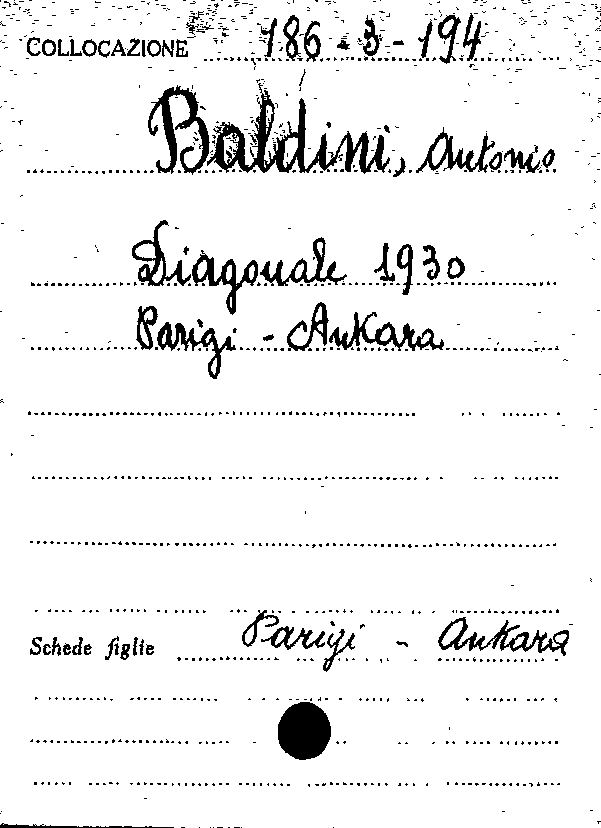 COLLOCAZIONE 186-3-194
Baldini, Antonio
Diagonale 1930
Parigi - Ankara
Schede figlie Parigi - Ankara